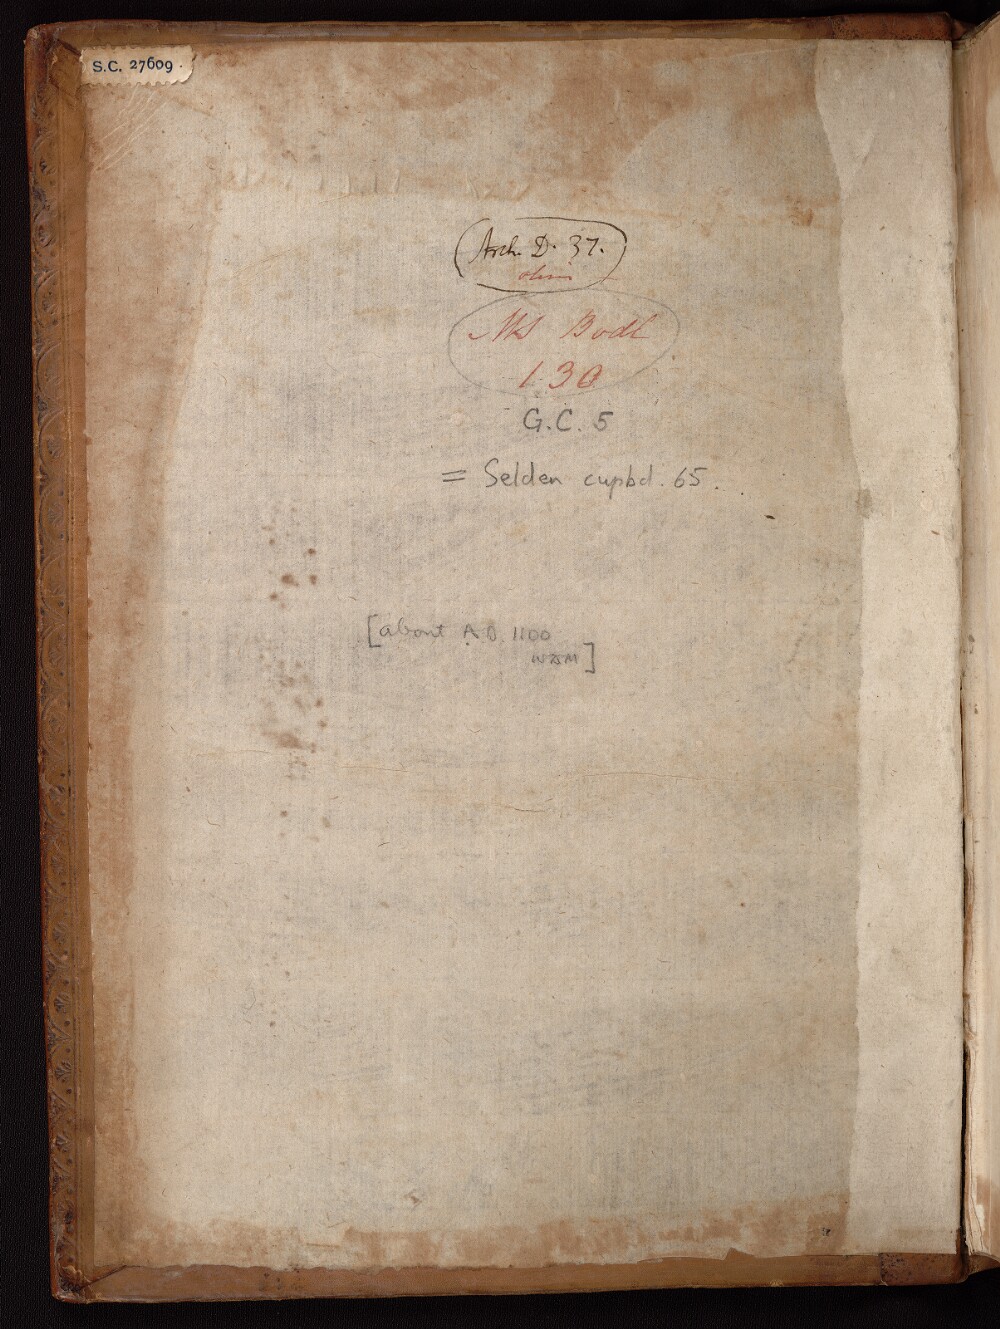 S.C. 27609.
Arch. D. 37.
olim
MS Bodl
130
G.C. 5
= Selden cupbd. 65.
[about A.D. 1100
]